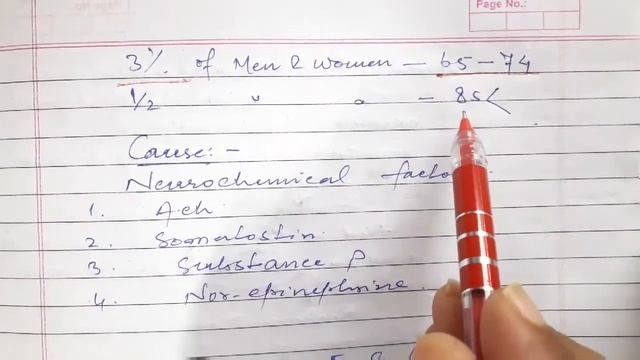 Page No.:
3% of Men & women - 65-74
1/2 " " - 85<
Cause:-
Neurochemical facto
1. Ach
2. Somatostin.
3. Substance P
4. Nor-epinephrine.